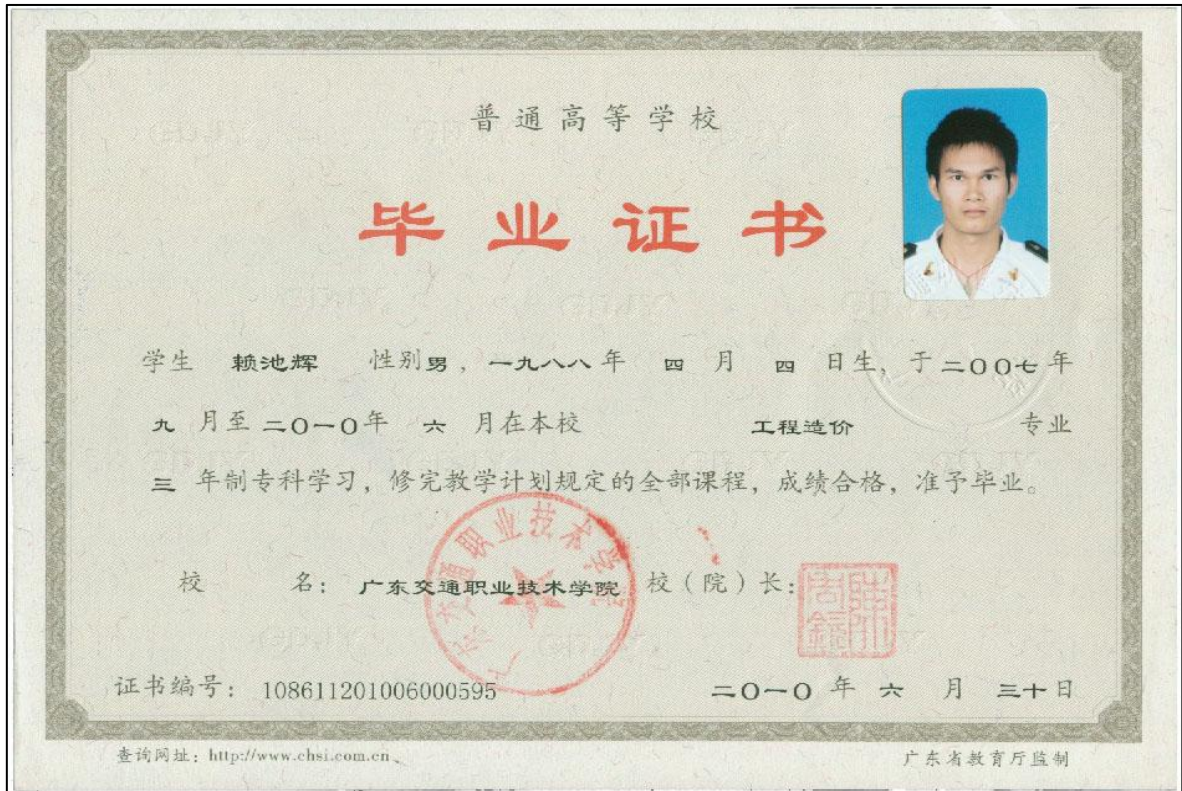 普通高等学校
毕业证书
学生 赖池辉 性别男，一九八八年 四 月 四 日生，于二〇〇七年
九 月至二〇一〇年 六 月在本校 工程造价 专业
三 年制专科学习，修完教学计划规定的全部课程，成绩合格，准予毕业。
广东交通职业技术学院
校 名：广东交通职业技术学院 校（院）长：
证书编号：108611201006000595 二〇一〇 年 六 月 三十日
查询网址：http://www.chsi.com.cn
广东省教育厅监制